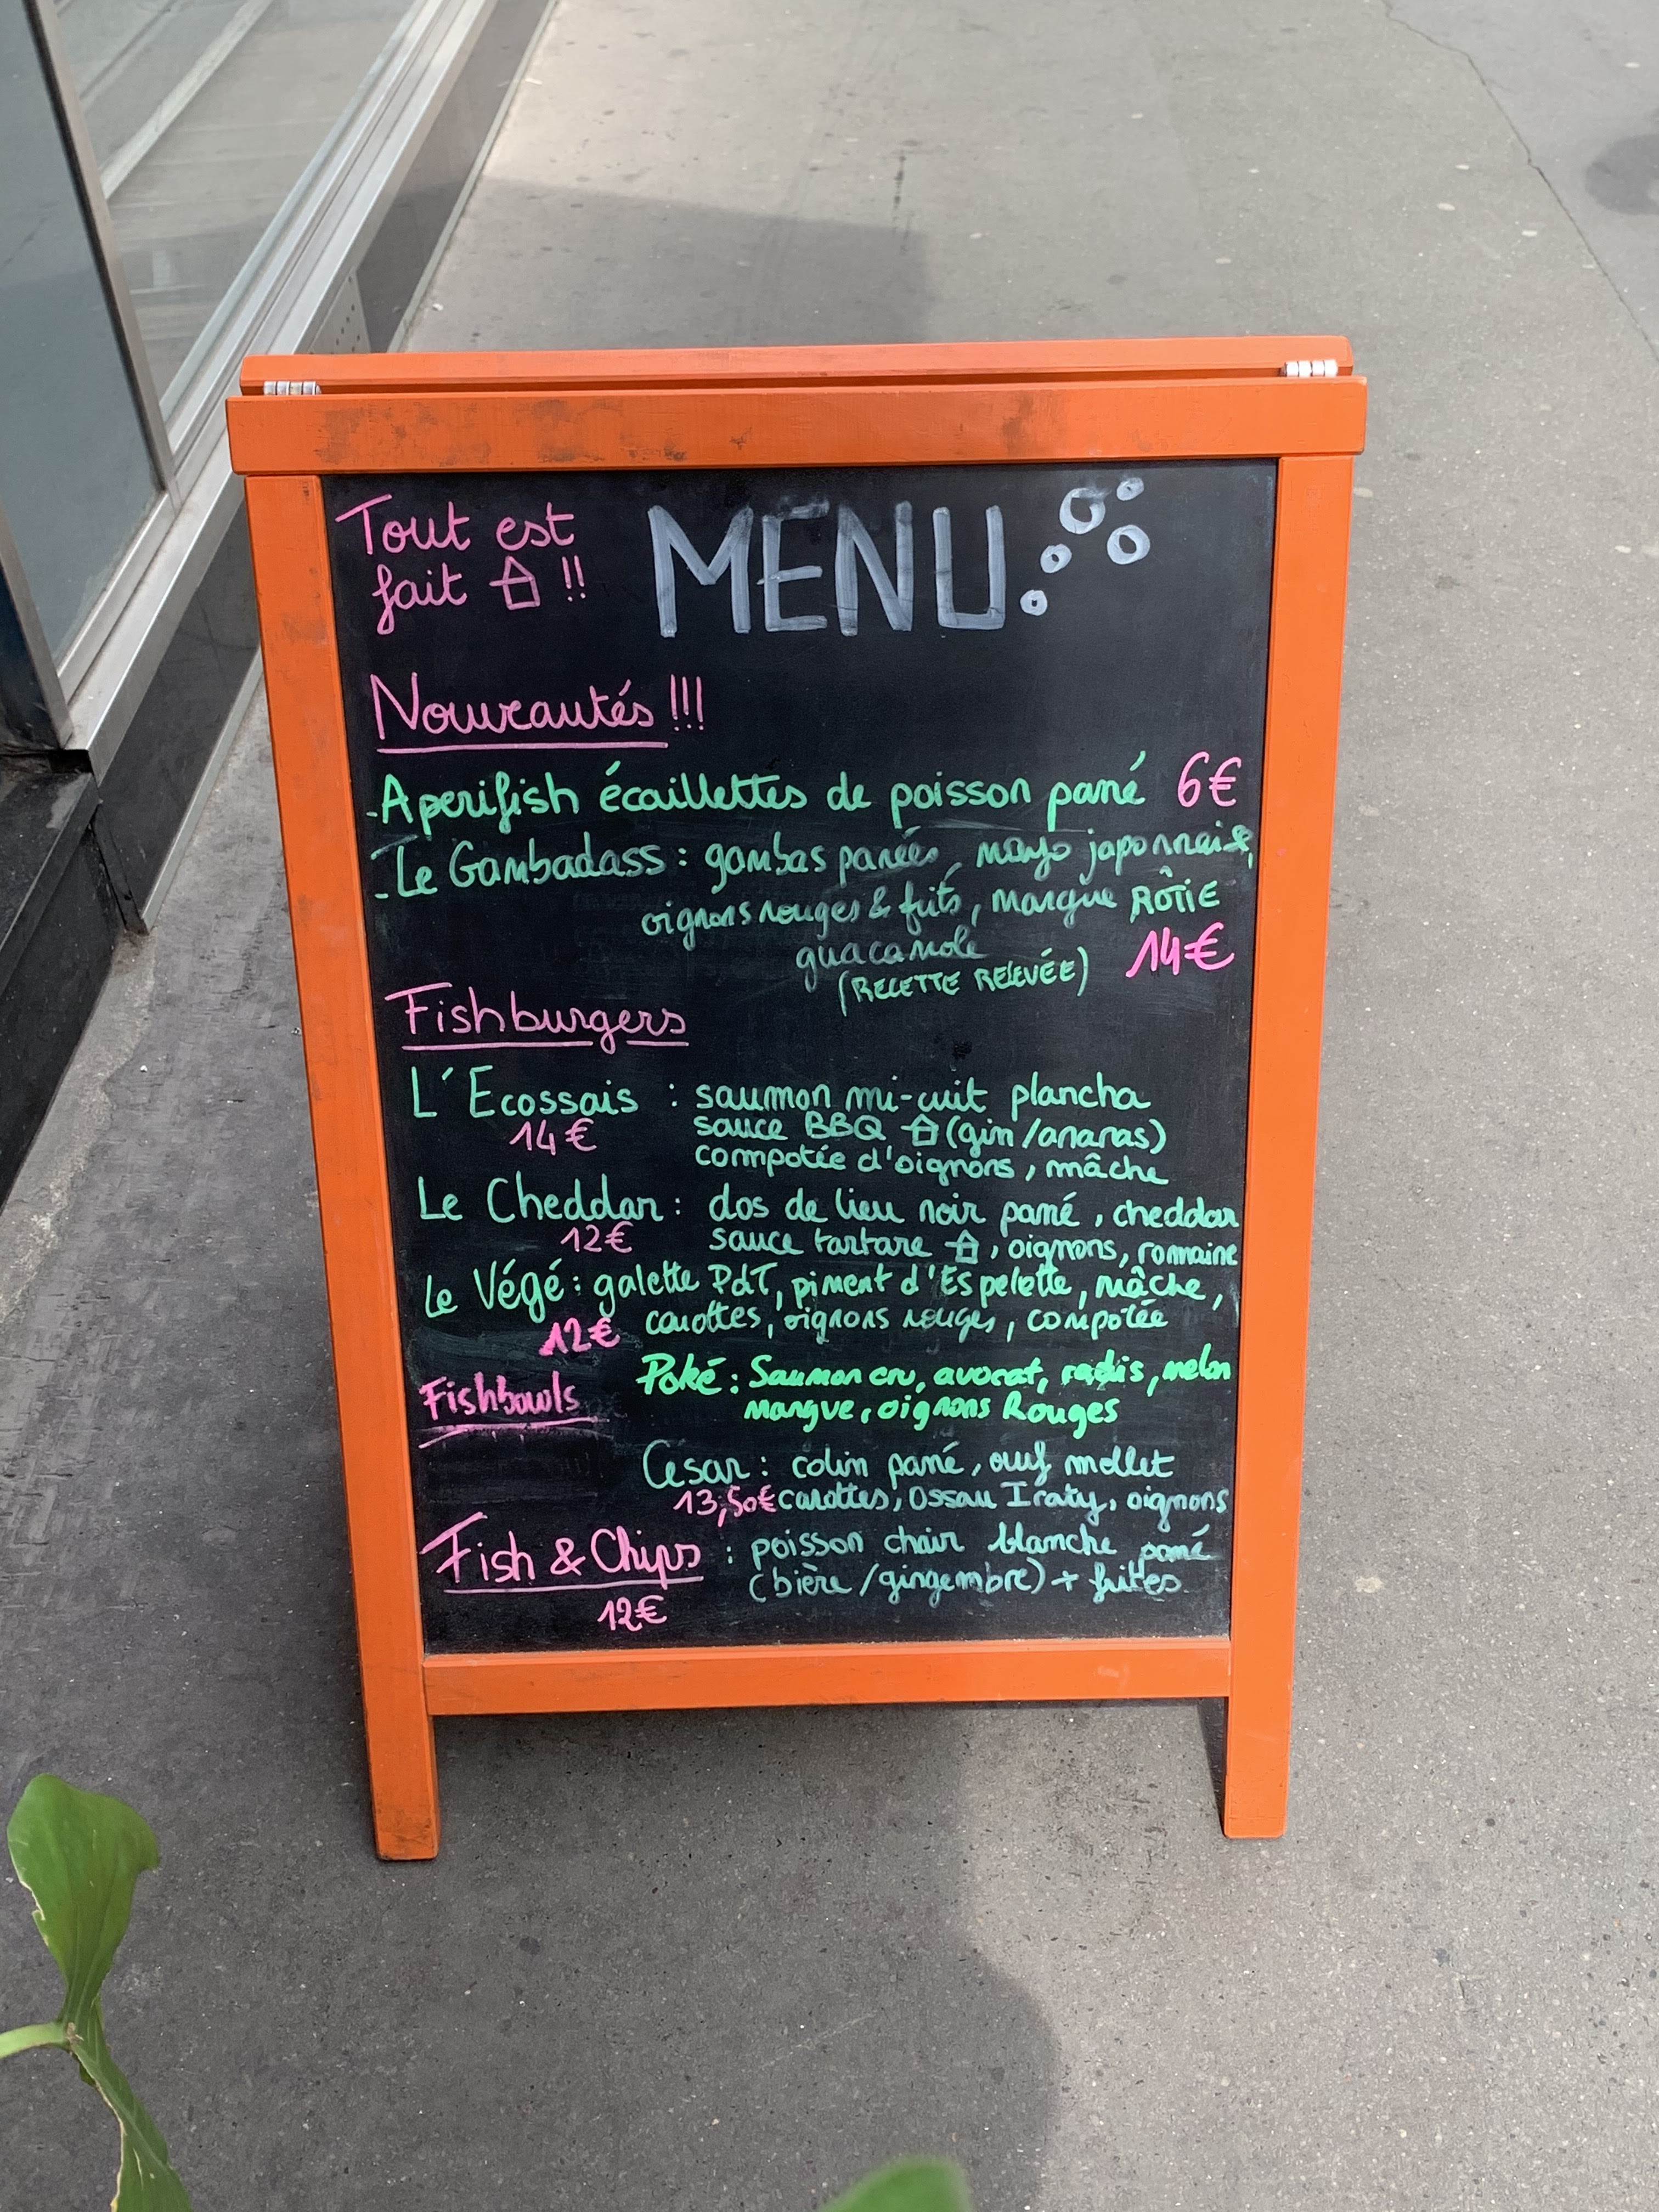 Tout est
fait !!
MENU
Nouveautés !!!
- Aperifish écaillettes de poisson pané 6€
- Le Gambadass : gambas panées, mayo japonnaise,
oignons rouges & frits, mangue RÔTIE
guacamole 14€
(RECETTE RELEVÉE)
Fishburgers
L'Ecossais : saumon mi-cuit plancha
14€ sauce BBQ (gin/ananas)
compotée d'oignons, mâche
Le Cheddar : dos de lieu noir pané, cheddar
12€ sauce tartare, oignons, romaine
Le Végé : galette PdT, piment d'Espelette, mâche,
12€ carottes, oignons rouges, compotée
Fishbowls Poké : Saumon cru, avocat, radis, melon
mangue, oignons Rouges
César : colin pané, œuf mollet
13,50€ carottes, Ossau Iraty, oignons
Fish & Chips : poisson chair blanche pané
(bière/gingembre) + frites
12€